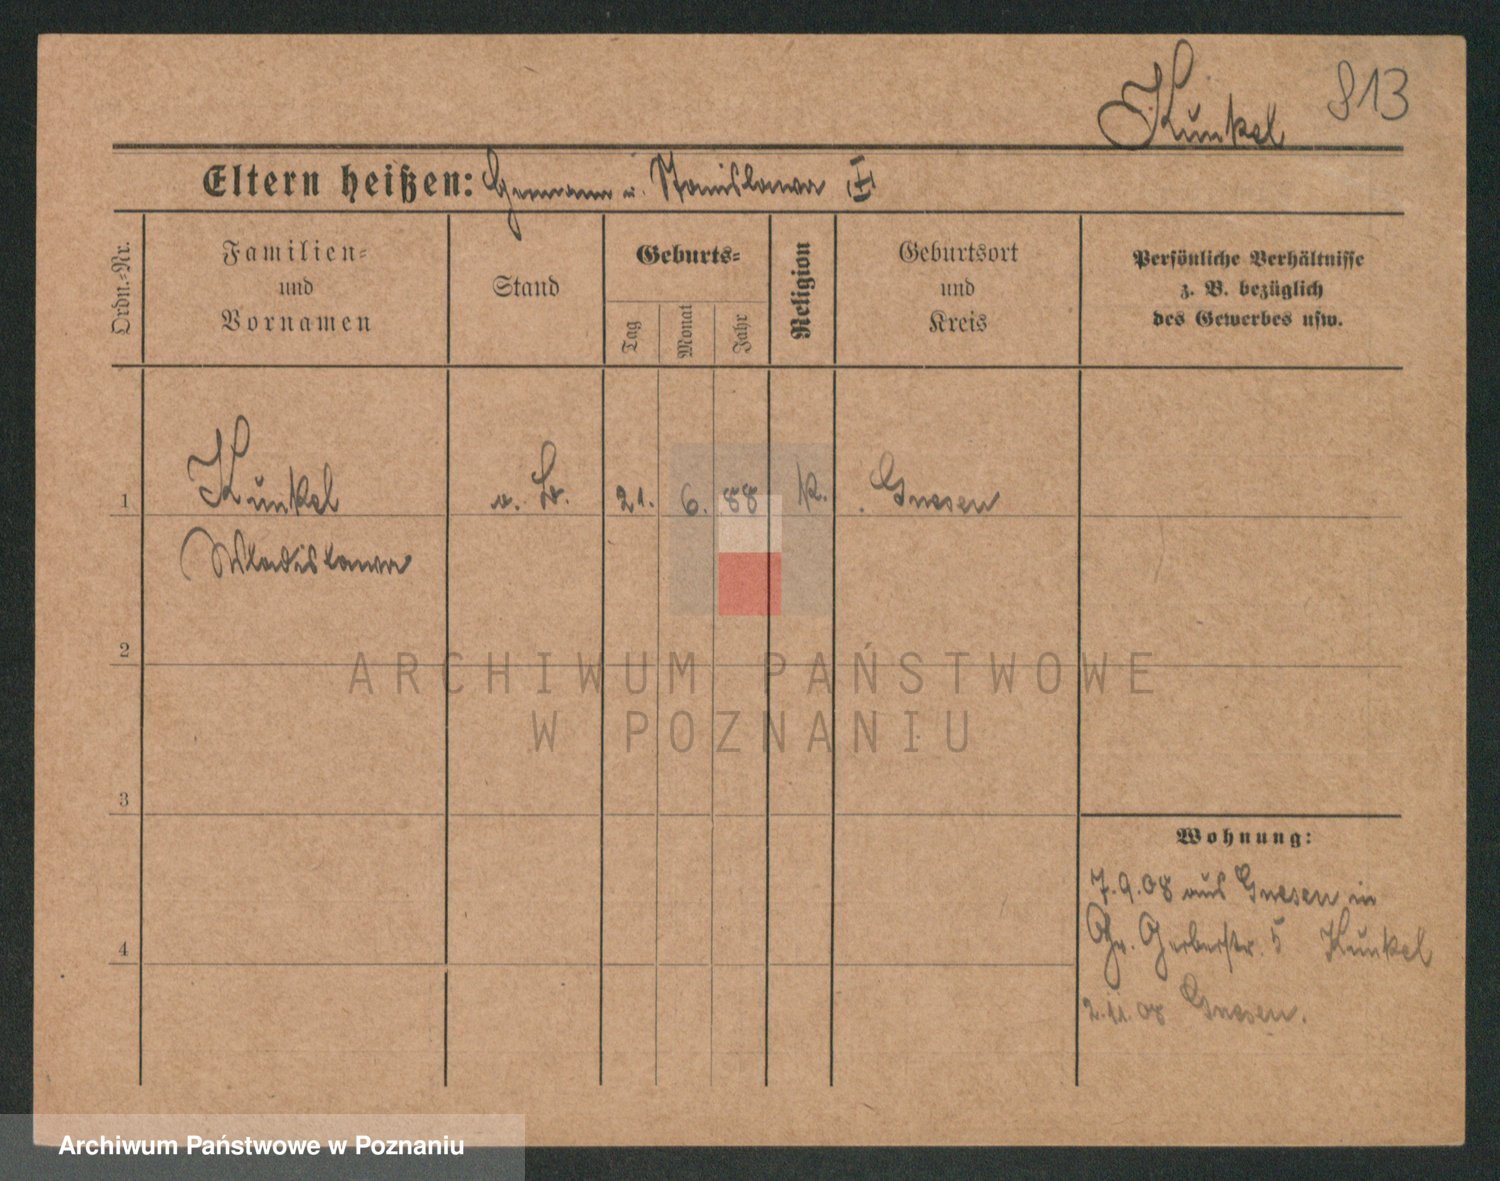 Kunkel 813
Eltern heißen: Hermann u. Stanislawa
Ordn.-Nr.
Familien-
und
Vornamen
Stand
Geburts-
Tag
Monat
Jahr
Religion
Geburtsort
und
Kreis
Persönliche Verhältnisse
z. B. bezüglich
des Gewerbes usw.
1 Kunkel 21. 6. 88 k. Gnesen
Wladislawa
2
ARCHIWUM PAŃSTWOWE
W POZNANIU
3
Wohnung:
7.9.08 aus Gnesen in
Gr. Gerberstr. 5 Kunkel
4
2.11.08 Gnesen.
Archiwum Państwowe w Poznaniu